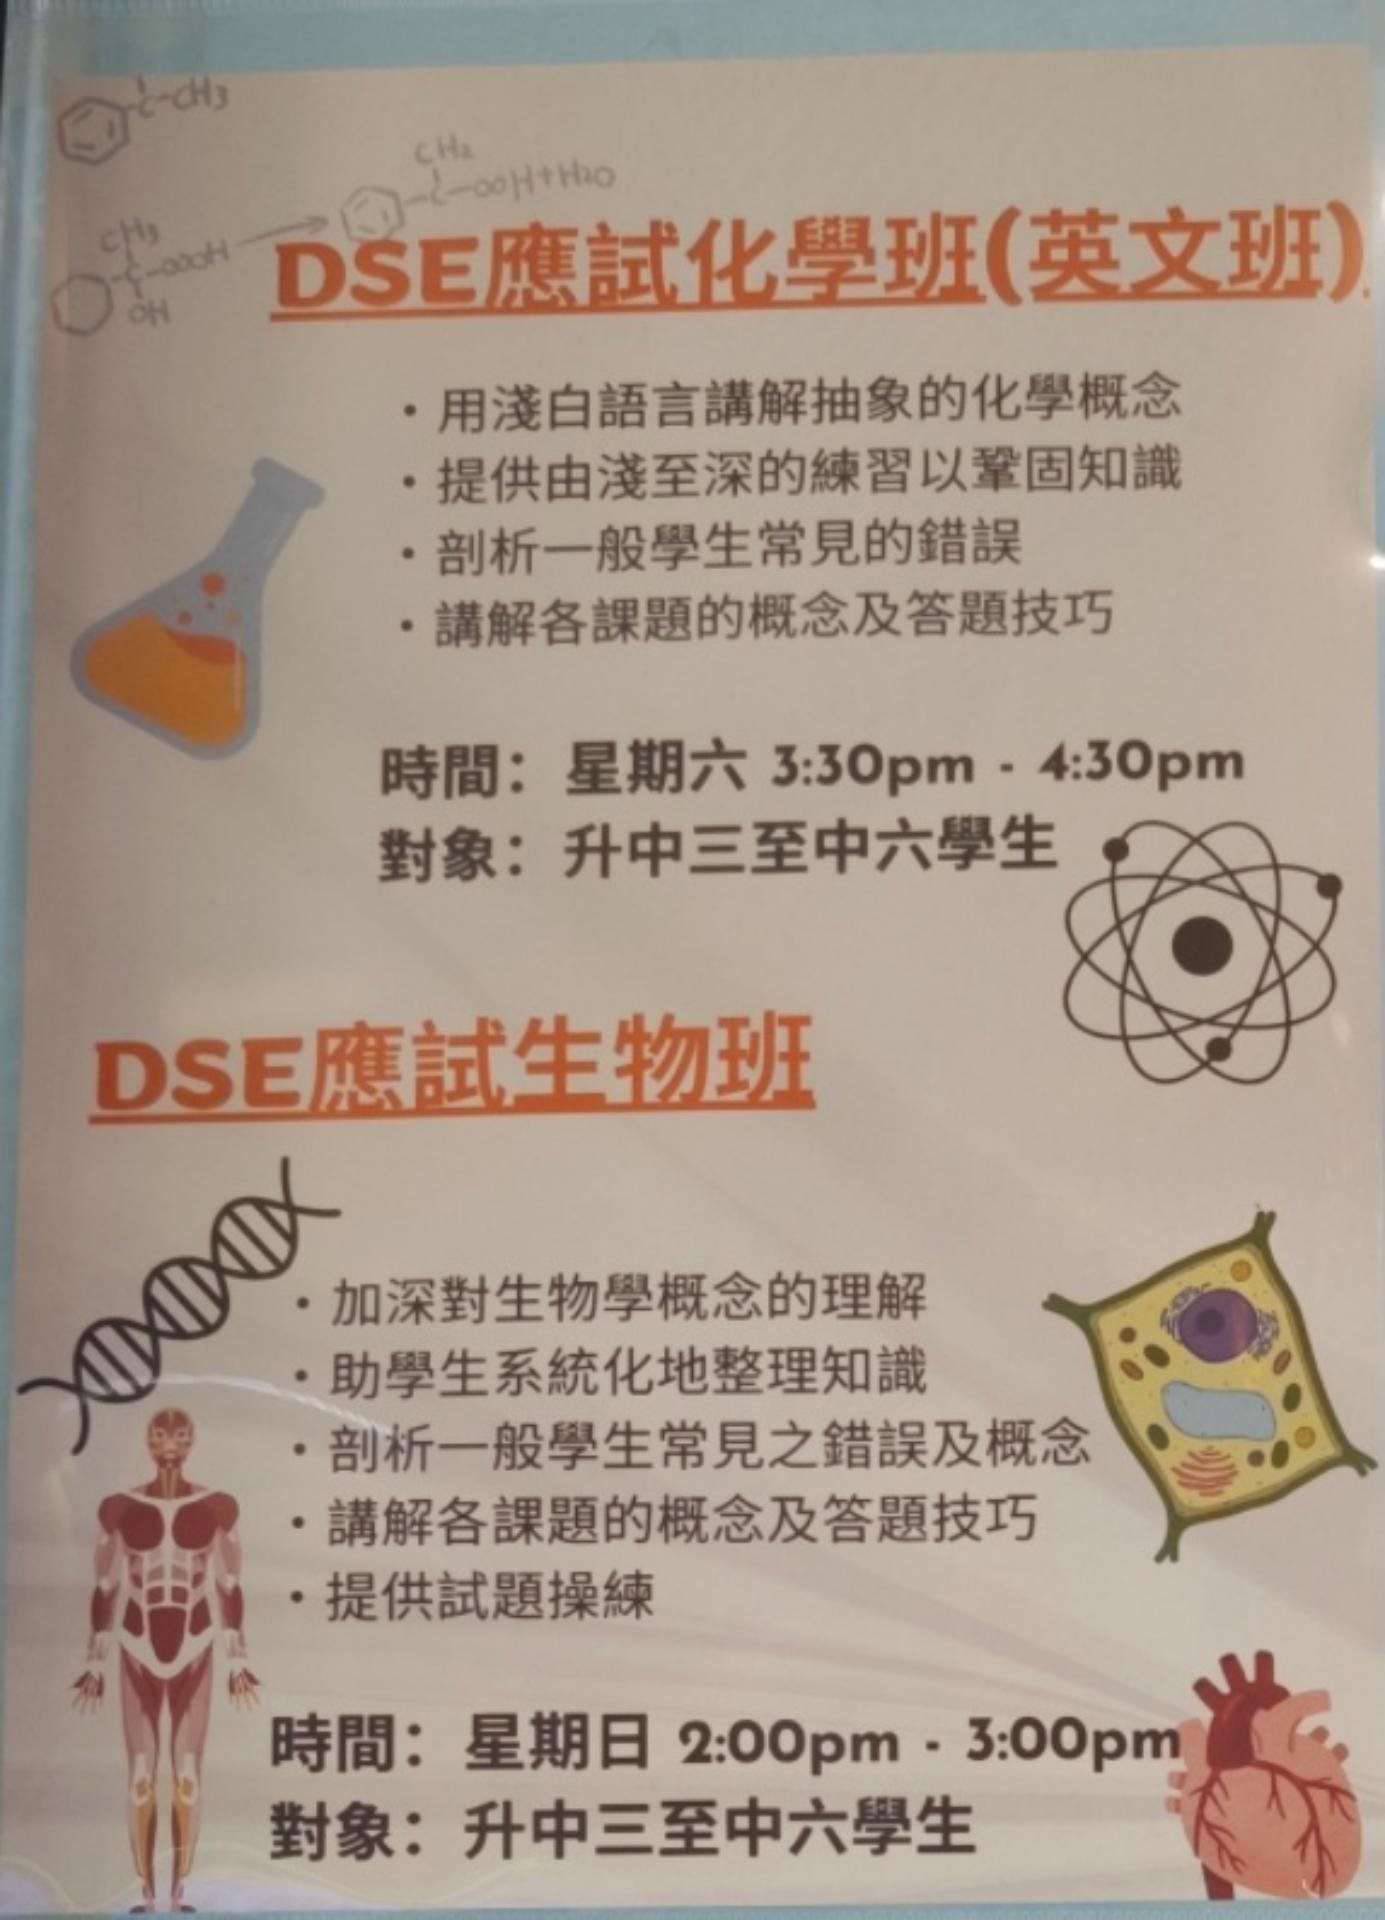 C-CH3
CH3
C-OOOH
OH
CH2
C-OOH+H2O
DSE應試化學班(英文班)
・用淺白語言講解抽象的化學概念
・提供由淺至深的練習以鞏固知識
・剖析一般學生常見的錯誤
・講解各課題的概念及答題技巧
時間：星期六 3:30pm - 4:30pm
對象：升中三至中六學生
DSE應試生物班
・加深對生物學概念的理解
・助學生系統化地整理知識
・剖析一般學生常見之錯誤及概念
・講解各課題的概念及答題技巧
・提供試題操練
時間：星期日 2:00pm - 3:00pm
對象：升中三至中六學生